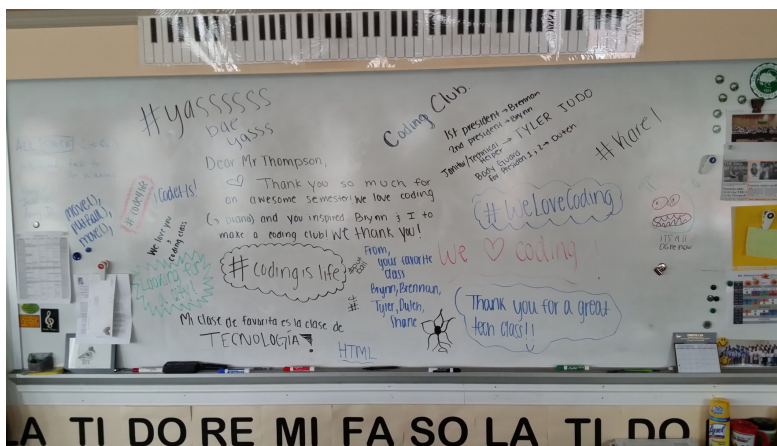 #yassssss
bae
yasss
Dear Mr Thompson,
♡ Thank you so much for
an awesome semester! We love coding
(& piano) and you inspired Brynn & I to
make a coding club! We thank you!
#coding is life
From,
your favorite
class
Brynn, Brennan,
Tyler, Dutch,
Shane
Mi clase de favorita es la clase de
TECNOLOGÍA
HTML
move();
move();
iCodeHS!
We love you
coding class
Coding Club
1st president → Brennan
2nd president → Brynn
Janitor/Technical
Helper → TYLER JODO
Body Guard
for President 1, 2 → Dutch
#Karel
#WeLoveCoding
We ♡ coding
Thank you for a great
tech class!!
IT'S all
Ogre now
LA TI DO RE MI FA SO LA TI DO